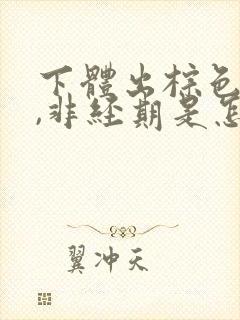 下體出棕色
,非经期是怎
翼冲天